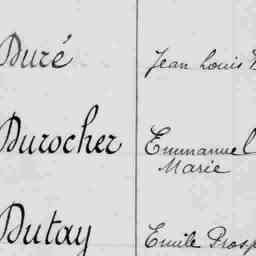 Duré Jean Louis
Durocher Emmanuel
Marie
Dutay Emile Prosp